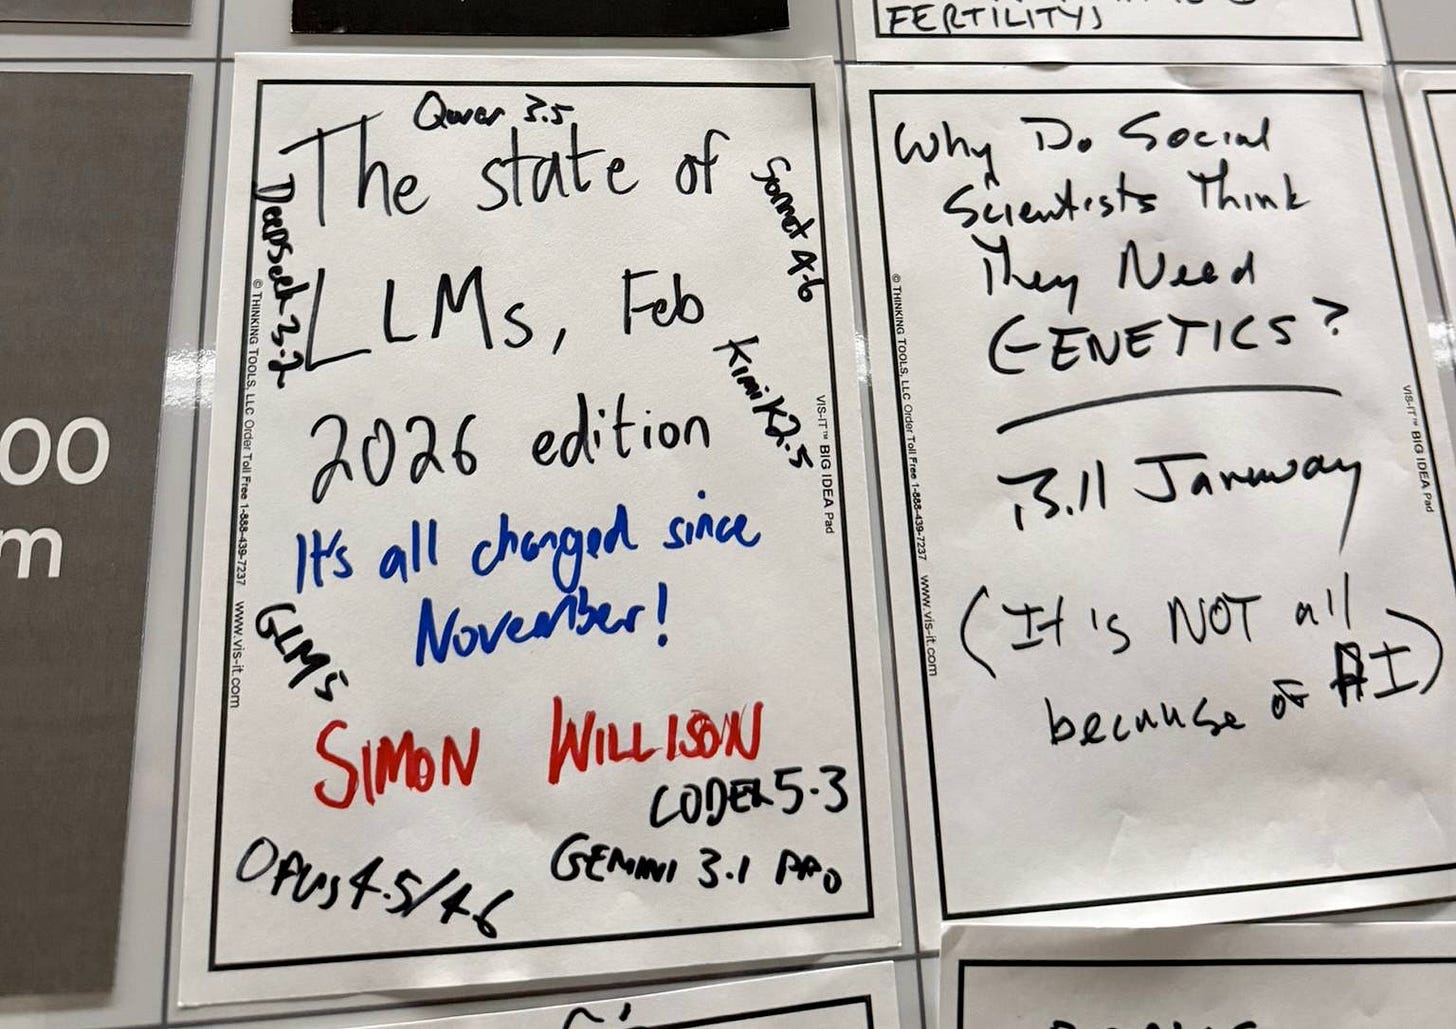 FERTILITY)
00
m
Qwen 3.5
The state of
LLMs, Feb
2026 edition
It's all changed since
November!
SIMON WILLISON
DeepSeek 3.2
Sonnet 4.6
Kimi K2.5
GLM5
CODEX 5.3
GEMINI 3.1 PRO
OPUS 4.5/4.6
© THINKING TOOLS, LLC Order Toll Free 1-888-439-7237 www.vis-it.com
VIS-IT™ BIG IDEA Pad
Why Do Social
Scientists Think
They Need
GENETICS?
J.J. January
(It is NOT all
because of AI)
© THINKING TOOLS, LLC Order Toll Free 1-888-439-7237 www.vis-it.com
VIS-IT™ BIG IDEA Pad